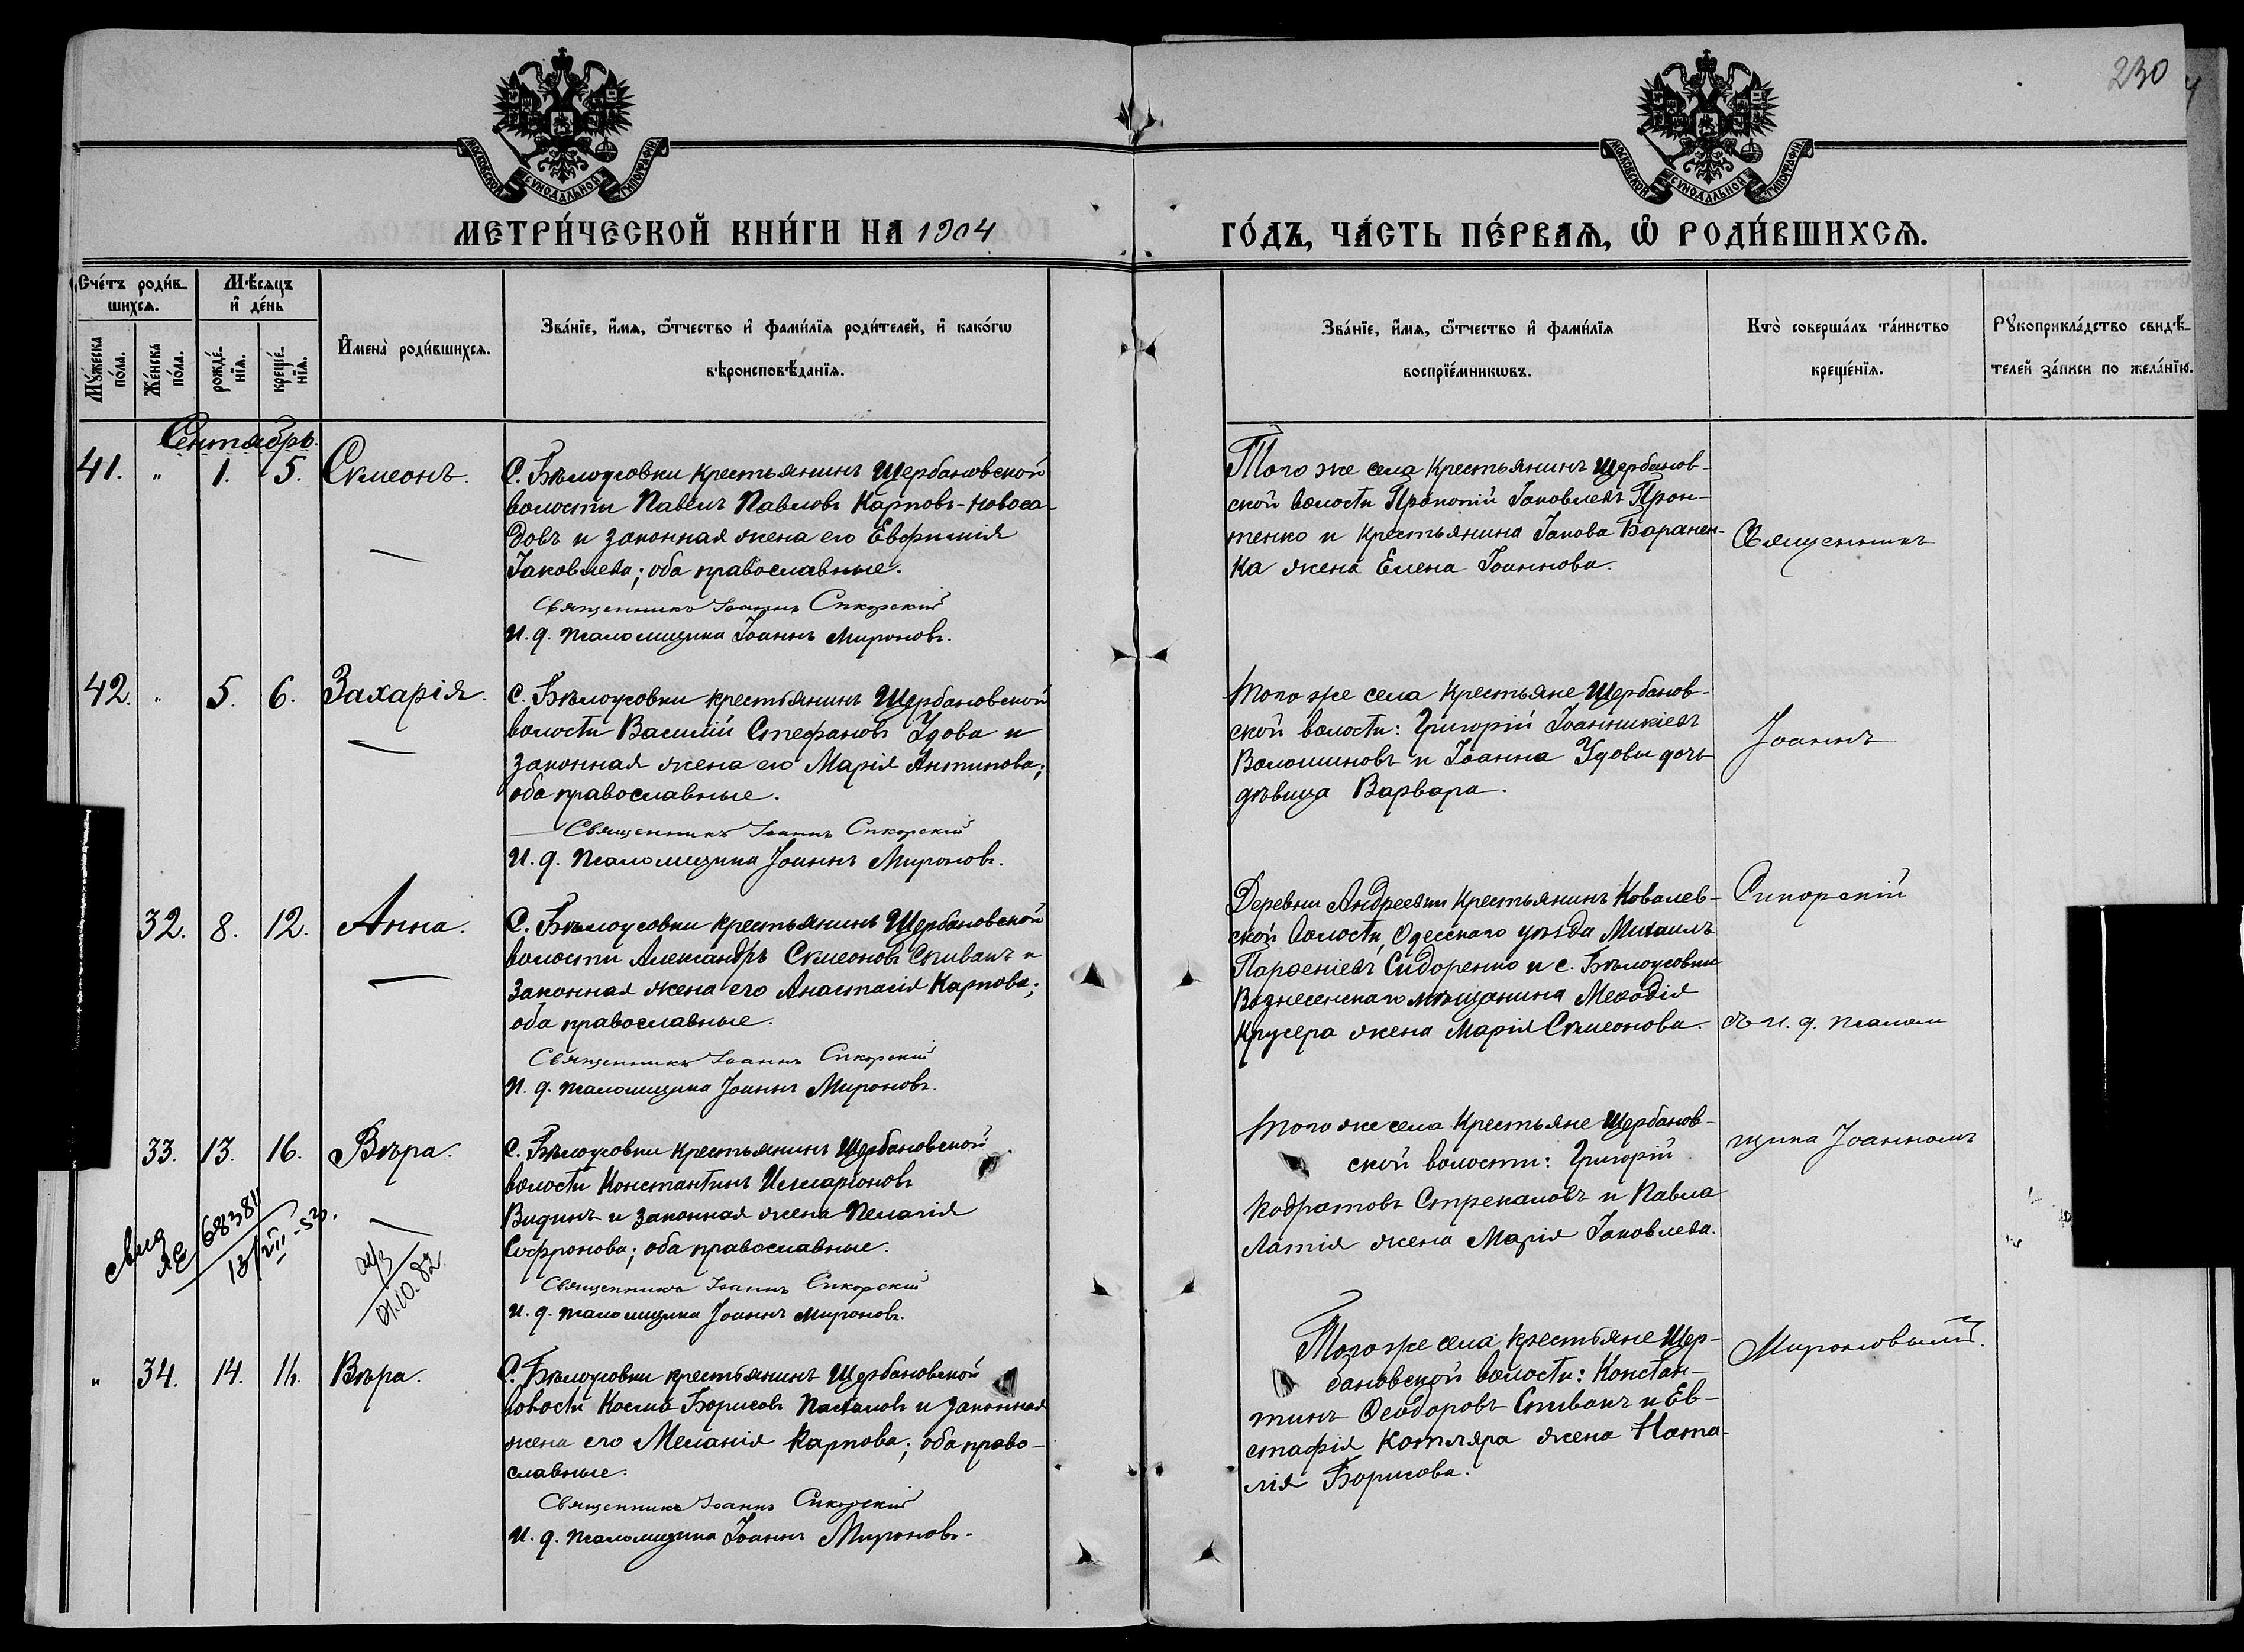 230
МОСКОВСКОЙ СУНОДАЛЬНОЙ ТИПОГРАФІИ
МОСКОВСКОЙ СУНОДАЛЬНОЙ ТИПОГРАФІИ
МЕТРИ́ЧЕСКОЙ КНИ́ГИ НА 1904
ГО́ДЪ, ЧА́СТЬ ПЕ́РВАѦ, Ѡ РОДИ́ВШИХСѦ.
Сче́тъ роди́в-
шихсѧ.
Мꙋ́жеска по́ла.
Же́нска по́ла.
Мѣ́сяцъ
и҆ де́нь
рожде́-
нїѧ.
креще́-
нїѧ.
И҆мена̀ роди́вшихсѧ.
Зва́нїе, и҆́мѧ, ѻ҆́тчество и҆ фами́лїѧ роди́телей, и҆ како́гѡ
вѣроисповѣ́данїѧ.
Зва́нїе, и҆́мѧ, ѻ҆́тчество и҆ фами́лїѧ
воспрїе́мникѡвъ.
Кто̀ соверша́лъ та́инство
креще́нїѧ.
Рꙋкоприкла́дство свидѣ́-
телей за́писи по жела́нїю.
Сентябрь.
41. „ 1. 5. Сѵмеонъ.
С. Бѣлоусовки крестьянинъ Щербановской
волости Павелъ Павловъ Карповъ-Новоса-
довъ и законная жена его Евфимія
Іаковлева; оба православные.
Священникъ Іоаннъ Сикорскій
И. д. псаломщика Іоаннъ Мироновъ.
Того же села крестьянинъ Щербанов-
ской волости Прокопій Іаковлевъ Прон-
тенко и крестьянина Іакова Баранен-
ка жена Елена Іоаннова.
Священникъ
42. „ 5. 6. Захарія.
С. Бѣлоусовки крестьянинъ Щербановской
волости Василій Стефановъ Удова и
законная жена его Марія Антипова;
оба православные.
Священникъ Іоаннъ Сикорскій
И. д. псаломщика Іоаннъ Мироновъ.
Того же села крестьяне Щербанов-
ской волости: Григорій Іоанникіевъ
Волошиновъ и Іоанна Удовы дочь
дѣвица Варвара.
Іоаннъ
32. 8. 12. Анна.
С. Бѣлоусовки крестьянинъ Щербановской
волости Александръ Сѵмеоновъ Спивакъ и
законная жена его Анастасія Карпова;
оба православные.
Священникъ Іоаннъ Сикорскій
И. д. псаломщика Іоаннъ Мироновъ.
Деревни Андреевки крестьянинъ Ковалев-
ской волости, Одесскаго уѣзда Михаилъ
Парѳеніевъ Сидоренко и с. Бѣлоусовки
Вознесенскаго мѣщанина Меѳодія
Крусера жена Марія Сѵмеонова.
Сикорскій
съ и. д. псалом
33. 13. 16. Вѣра.
С. Бѣлоусовки крестьянинъ Щербановской
волости Константинъ Илларіоновъ
Видинъ и законная жена Пелагія
Софронова; оба православные.
Священникъ Іоаннъ Сикорскій
И. д. псаломщика Іоаннъ Мироновъ.
68384
13/VII-53.
01.10.82.
Того же села крестьяне Щербанов-
ской волости: Григорій
Кодратовъ Стрекаловъ и Павла
Латія жена Марія Іаковлева.
щика Іоанномъ
„ 34. 14. 16. Вѣра.
С. Бѣлоусовки крестьянинъ Щербановской
волости Косма Борисовъ Пахаловъ и законная
жена его Меланія Карпова; оба право-
славные.
Священникъ Іоаннъ Сикорскій
И. д. псаломщика Іоаннъ Мироновъ.
Того же села крестьяне Щер-
бановской волости: Констан-
тинъ Ѳеодоровъ Спивакъ и Ев-
стафія Котляра жена Ната-
лія Борисова.
Мироновымъ.